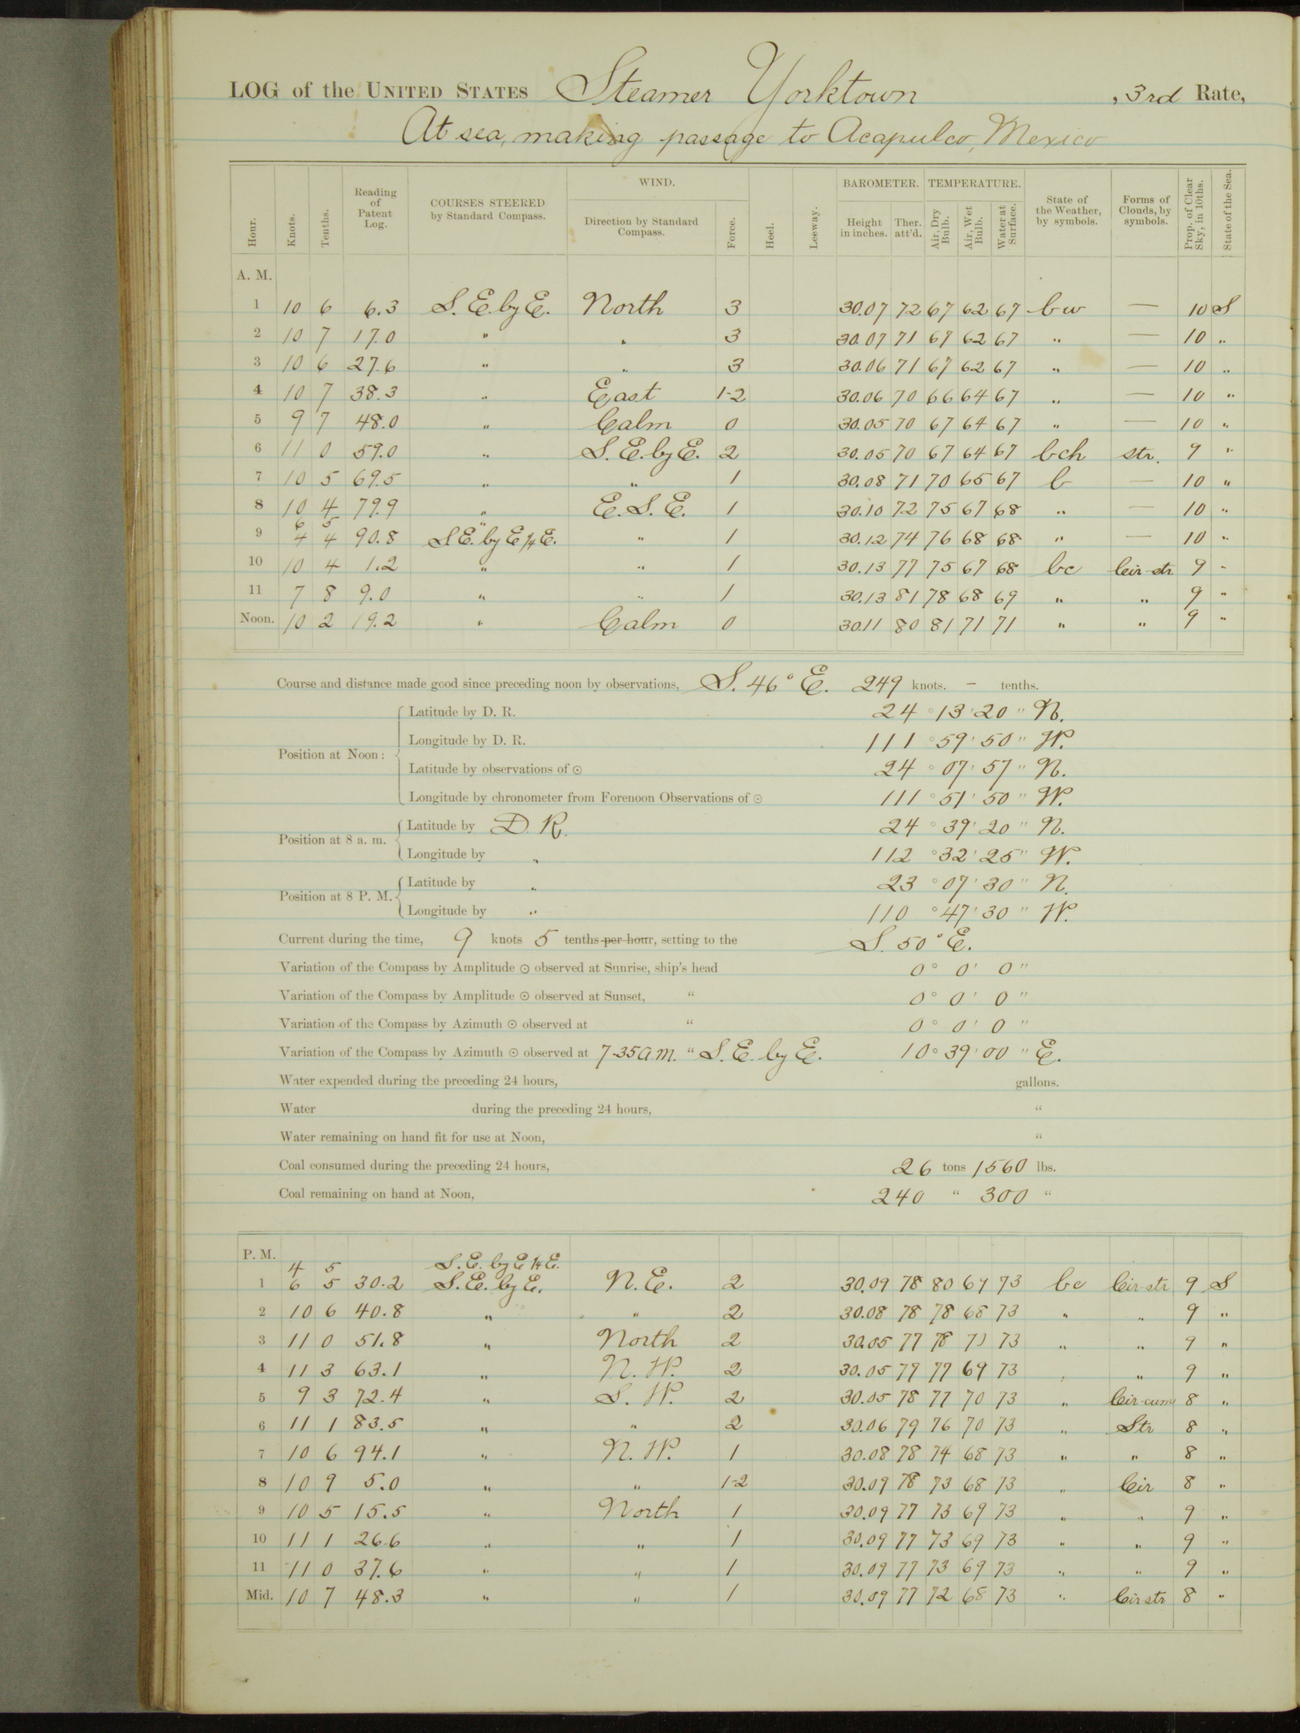 LOG of the UNITED STATES Steamer Yorktown, 3rd Rate,
At sea, making passage to Acapulco, Mexico
Hour. Knots. Tenths. Reading of Patent Log. COURSES STEERED by Standard Compass. WIND. Direction by Standard Compass. Force. Heel. Leeway. BAROMETER. Height in inches. Ther. att'd. TEMPERATURE. Air, Dry Bulb. Air, Wet Bulb. Water at Surface. State of the Weather, by symbols. Forms of Clouds, by symbols. Prop. of Clear Sky, in 10ths. State of the Sea.
A. M.
1 10 6 6.3 S.E. by E. North 3 30.07 72 67 62 67 bw — 10 S
2 10 7 17.0 " " 3 30.07 71 67 62 67 " — 10 "
3 10 6 27.6 " " 3 30.06 71 67 62 67 " — 10 "
4 10 7 38.3 " East 1-2 30.06 70 66 64 67 " — 10 "
5 9 7 48.0 " Calm 0 30.05 70 67 64 67 " — 10 "
6 11 0 59.0 " S.E. by E. 2 30.05 70 67 64 67 bch str. 9 "
7 10 5 69.5 " " 1 30.08 71 70 65 67 b — 10 "
8 10 4 79.9 " E.S.E. 1 30.10 72 75 67 68 " — 10 "
6 5 "
9 4 4 90.8 S.E. by E ¼ E. " 1 30.12 74 76 68 68 " — 10 "
10 10 4 1.2 " " 1 30.13 77 75 67 68 bc Cir-str 9 "
11 7 8 9.0 " " 1 30.13 81 78 68 69 " " 9 "
Noon. 10 2 19.2 " Calm 0 30.11 80 81 71 71 " " 9 "
Course and distance made good since preceding noon by observations, S. 46° E. 249 knots. - tenths.
Position at Noon: Latitude by D. R. 24 ° 13 ' 20 " N.
Longitude by D. R. 111 ° 59 ' 50 " W.
Latitude by observations of ☉ 24 ° 07 ' 57 " N.
Longitude by chronometer from Forenoon Observations of ☉ 111 ° 51 ' 50 " W.
Position at 8 a. m. Latitude by D. R. 24 ° 39 ' 20 " N.
Longitude by " 112 ° 32 ' 25 " W.
Position at 8 P. M. Latitude by " 23 ° 07 ' 30 " N.
Longitude by " 110 ° 47 ' 30 " W.
Current during the time, 9 knots 5 tenths per hour, setting to the S. 50° E.
Variation of the Compass by Amplitude ☉ observed at Sunrise, ship's head 0 ° 0 ' 0 "
Variation of the Compass by Amplitude ☉ observed at Sunset, " 0 ° 0 ' 0 "
Variation of the Compass by Azimuth ☉ observed at " 0 ° 0 ' 0 "
Variation of the Compass by Azimuth ☉ observed at 7-35 a m. " S.E. by E. 10 ° 39 ' 00 " E.
Water expended during the preceding 24 hours, gallons.
Water during the preceding 24 hours, "
Water remaining on hand fit for use at Noon, "
Coal consumed during the preceding 24 hours, 26 tons 1560 lbs.
Coal remaining on hand at Noon, 240 " 300 "
P. M.
4 5 S.E. by E ¼ E.
1 6 5 30.2 S.E. by E. N.E. 2 30.09 78 80 67 73 bc Cir-str 9 S
2 10 6 40.8 " " 2 30.08 78 78 68 73 " " 9 "
3 11 0 51.8 " North 2 30.05 77 78 71 73 " " 9 "
4 11 3 63.1 " N.W. 2 30.05 77 77 69 73 " " 9 "
5 9 3 72.4 " S.W. 2 30.05 78 77 70 73 " Cir-cum 8 "
6 11 1 83.5 " " 2 30.06 79 76 70 73 " Str 8 "
7 10 6 94.1 " N.W. 1 30.08 78 74 68 73 " " 8 "
8 10 9 5.0 " " 1-2 30.09 78 73 68 73 " Cir 8 "
9 10 5 15.5 " North 1 30.09 77 73 69 73 " " 9 "
10 11 1 26.6 " " 1 30.09 77 73 69 73 " " 9 "
11 11 0 37.6 " " 1 30.09 77 73 69 73 " " 9 "
Mid. 10 7 48.3 " " 1 30.09 77 72 68 73 " Cir str 8 "